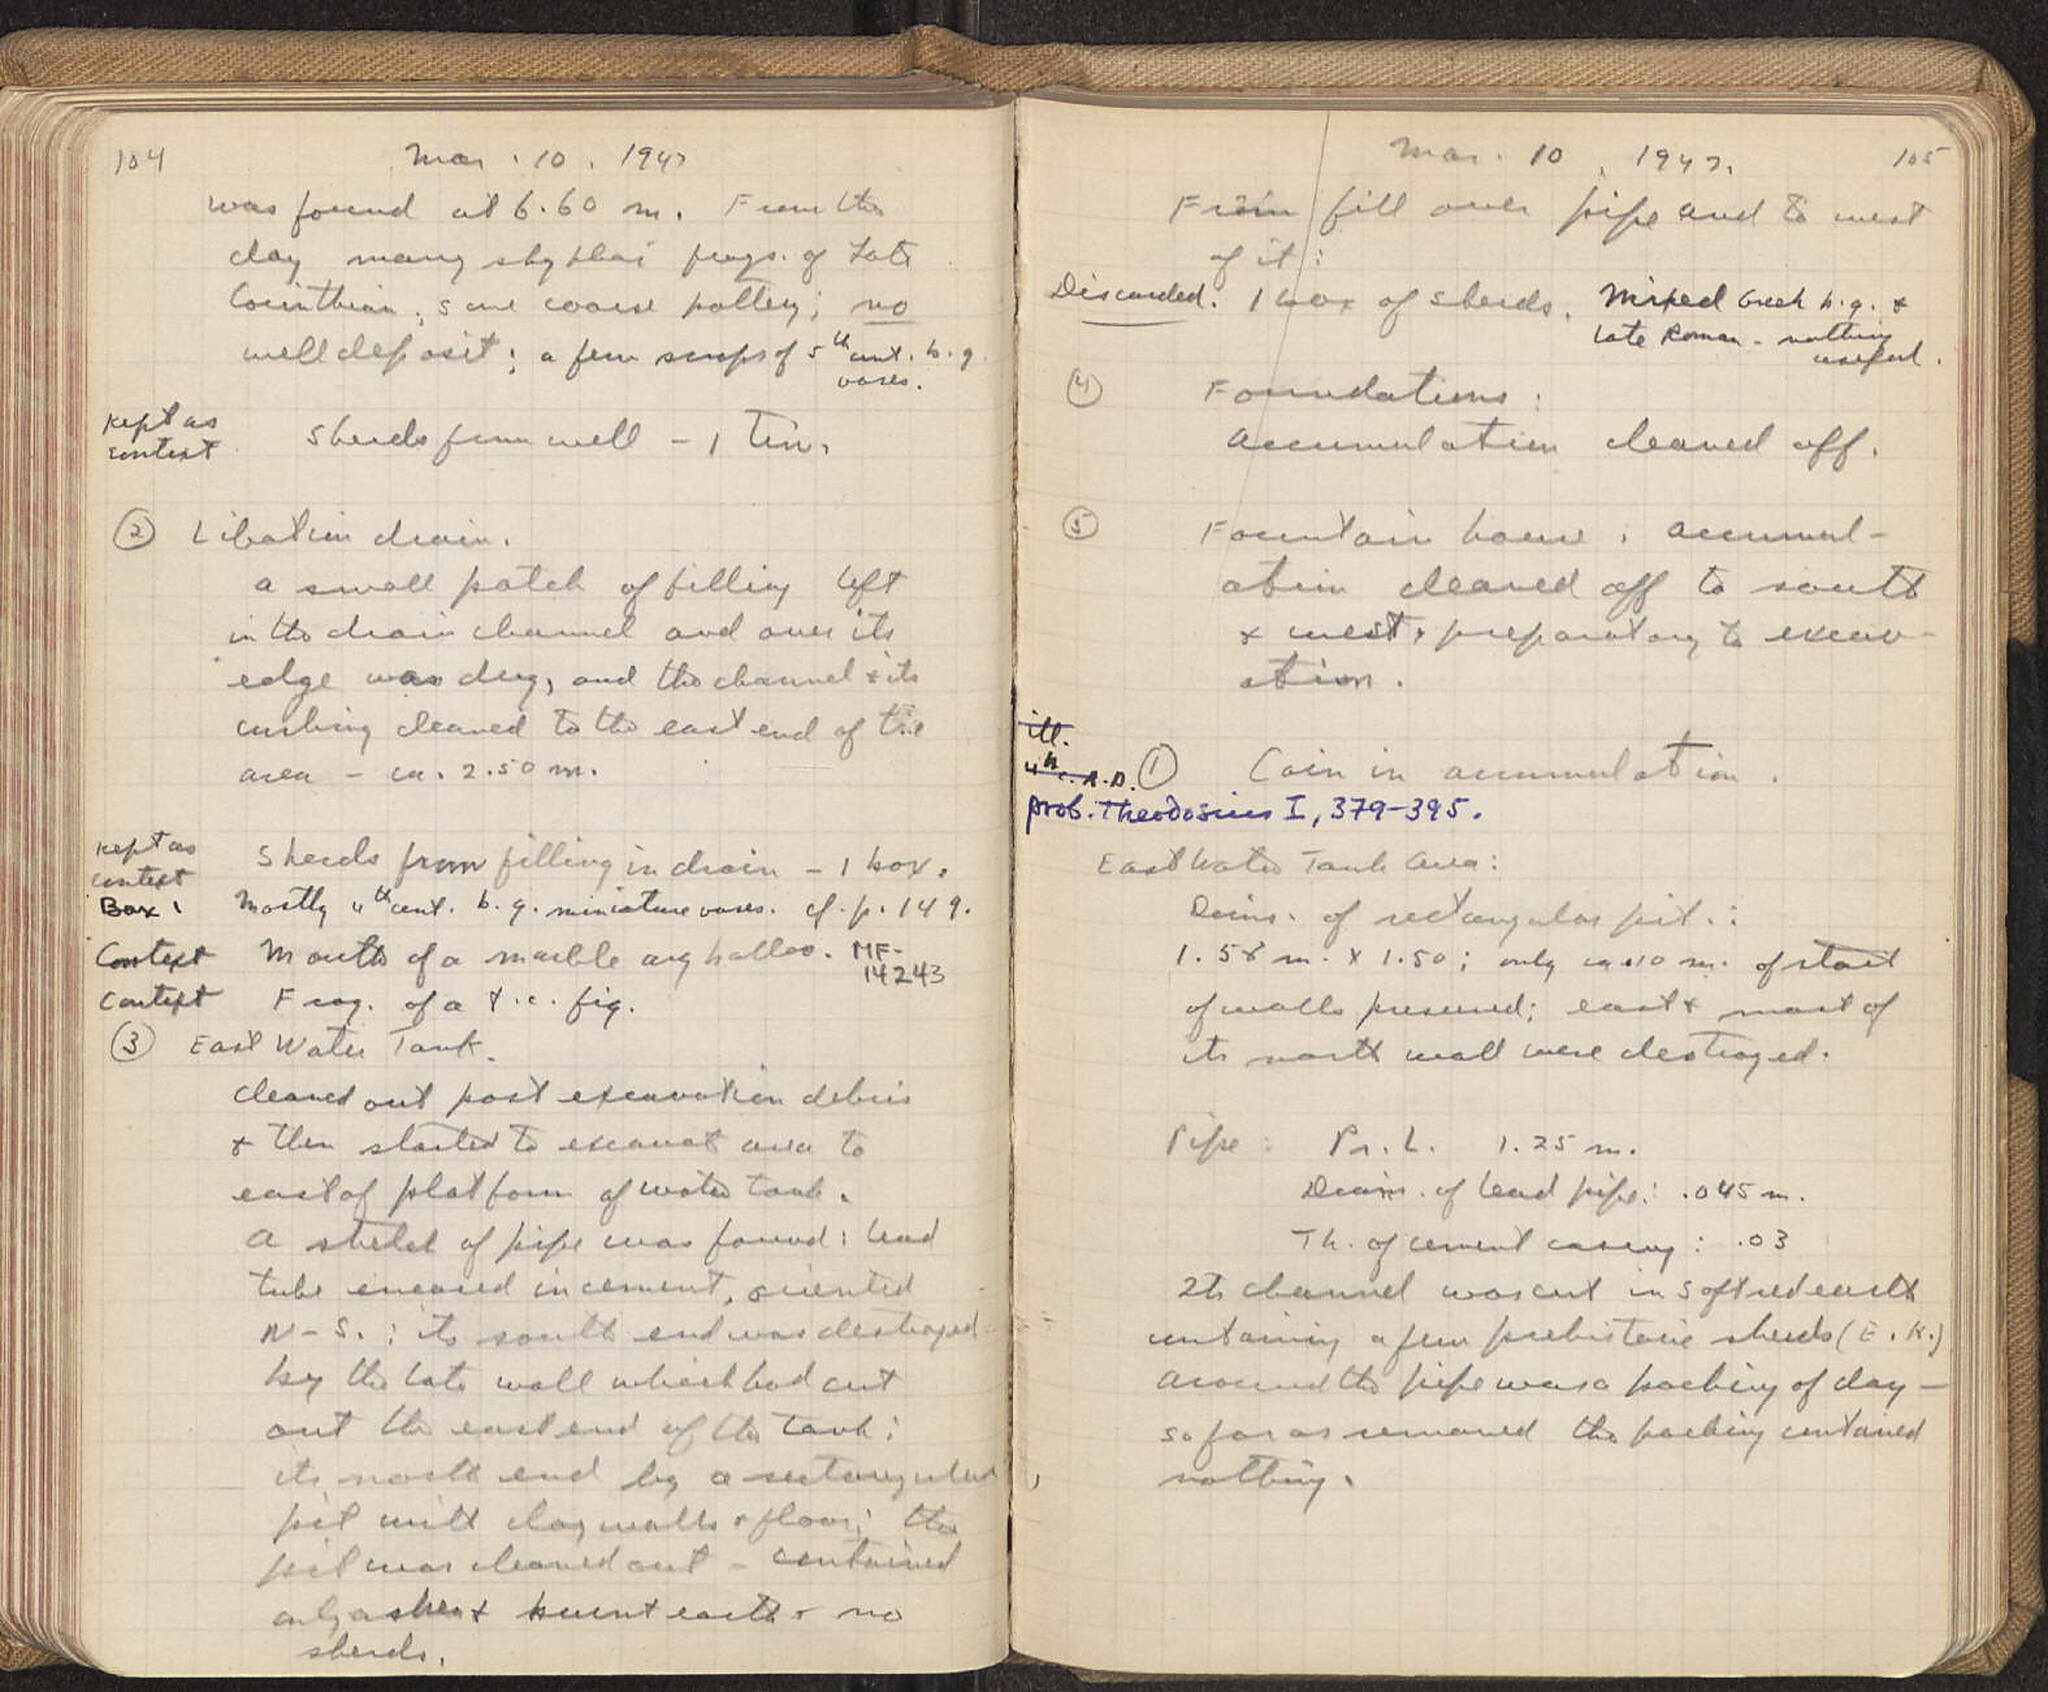 104
Mar. 10. 1947
was found at 6.60 m. From the
clay many skyphoi frags. of Late
Corinthian; some coarse pottery; no
well deposit; a few scraps of 5th cent. b.g.
vases.
Kept as
context
Sherds from well – 1 Tin.
② Libation drain.
a small patch of filling left
in the drain channel and over its
edge was dug, and the channel & its
curbing cleaned to the east end of the
area – ca. 2.50 m.
Kept as
context
Sherds from filling in drain – 1 box.
Box: Mostly 4th cent. b.g. miniature vases. cf. p. 149.
Context Mouth of a marble aryballos. MF-
14243
Context Frag. of a t.c. fig.
③ East Water Tank.
cleaned out post excavation debris
& then started to excavate area to
east of platform of water tank.
A stretch of pipe was found: lead
tube encased in cement, oriented
N-S.; its south end was destroyed
by the late wall which had cut
out the east end of the Tank;
its north end by a rectangular
pit with clay walls & floor; the
pit was cleaned out – contained
only ashes & burnt earth & no
sherds.
Mar. 10, 1947.
105
From fill over pipe and to west
of it:
Discarded. 1 box of sherds. Mixed Greek b.g. &
Late Roman – nothing
useful.
④ Foundations:
Accumulation cleaned off.
⑤ Fountain house. accumul-
ation cleaned off to south
& west, preparatory to excav-
ation.
ill.
4th c. A.D. ① Coin in accumulation.
prob. Theodosius I, 379-395.
East Water Tank Area:
Dims. of rectangular pit:
1.58 m. x 1.50; only ca .10 m. of start
of walls preserved; east & most of
its north wall were destroyed.
Pipe: Pr. L. 1.25 m.
Diam. of lead pipe: .045 m.
Th. of cement casing: .03
Its channel was cut in soft red earth
containing a few prehistoric sherds (E.H.)
Around the pipe was a packing of clay –
so far as removed the packing contained
nothing.